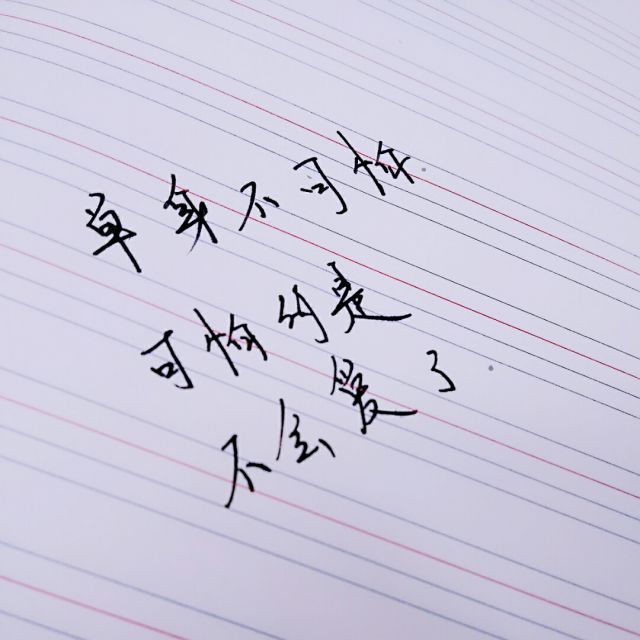 单身不可怕
可怕的是
不会爱了